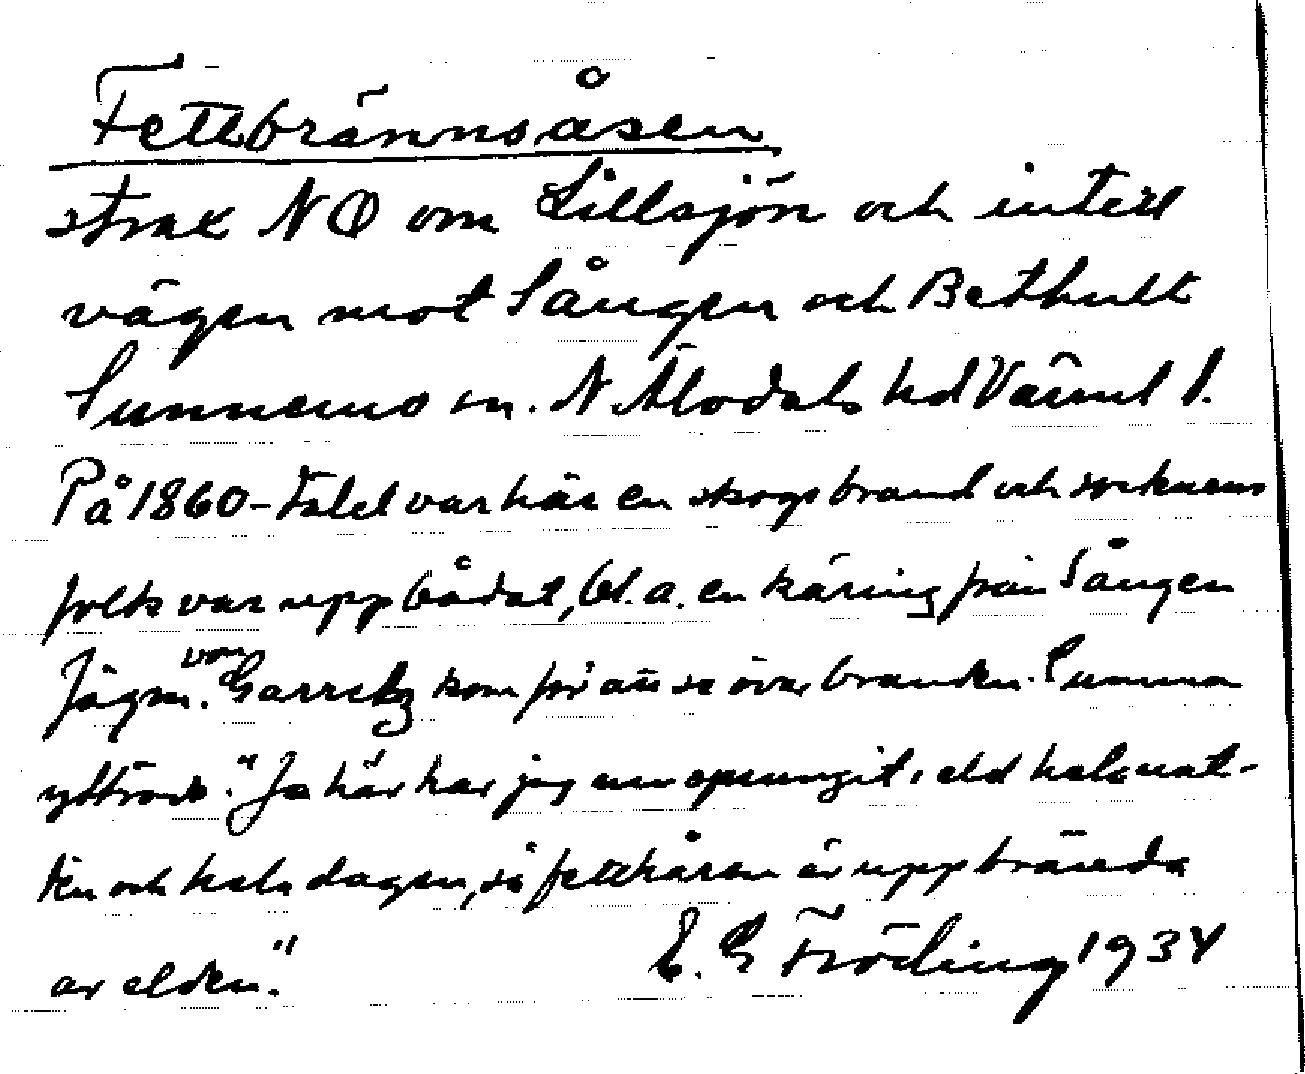 Fettbrännsåsen
strax NO om Lillsjön och intill
vägen mot Sången och Bethult
Sunnemo sn. N. Älvdals hd Värml l.
På 1860-talet var här en skogsbrand och socknens
folk var uppbådat, bl. a. en käring från Sången
Jägm. von Garretz kom för att se över branden.
yttrade: "Ja här har jag nu sprungit i eld hela nat-
ten och hela dagen, så fetthåren är uppbrända
av elden."
E. G Fröding 1934